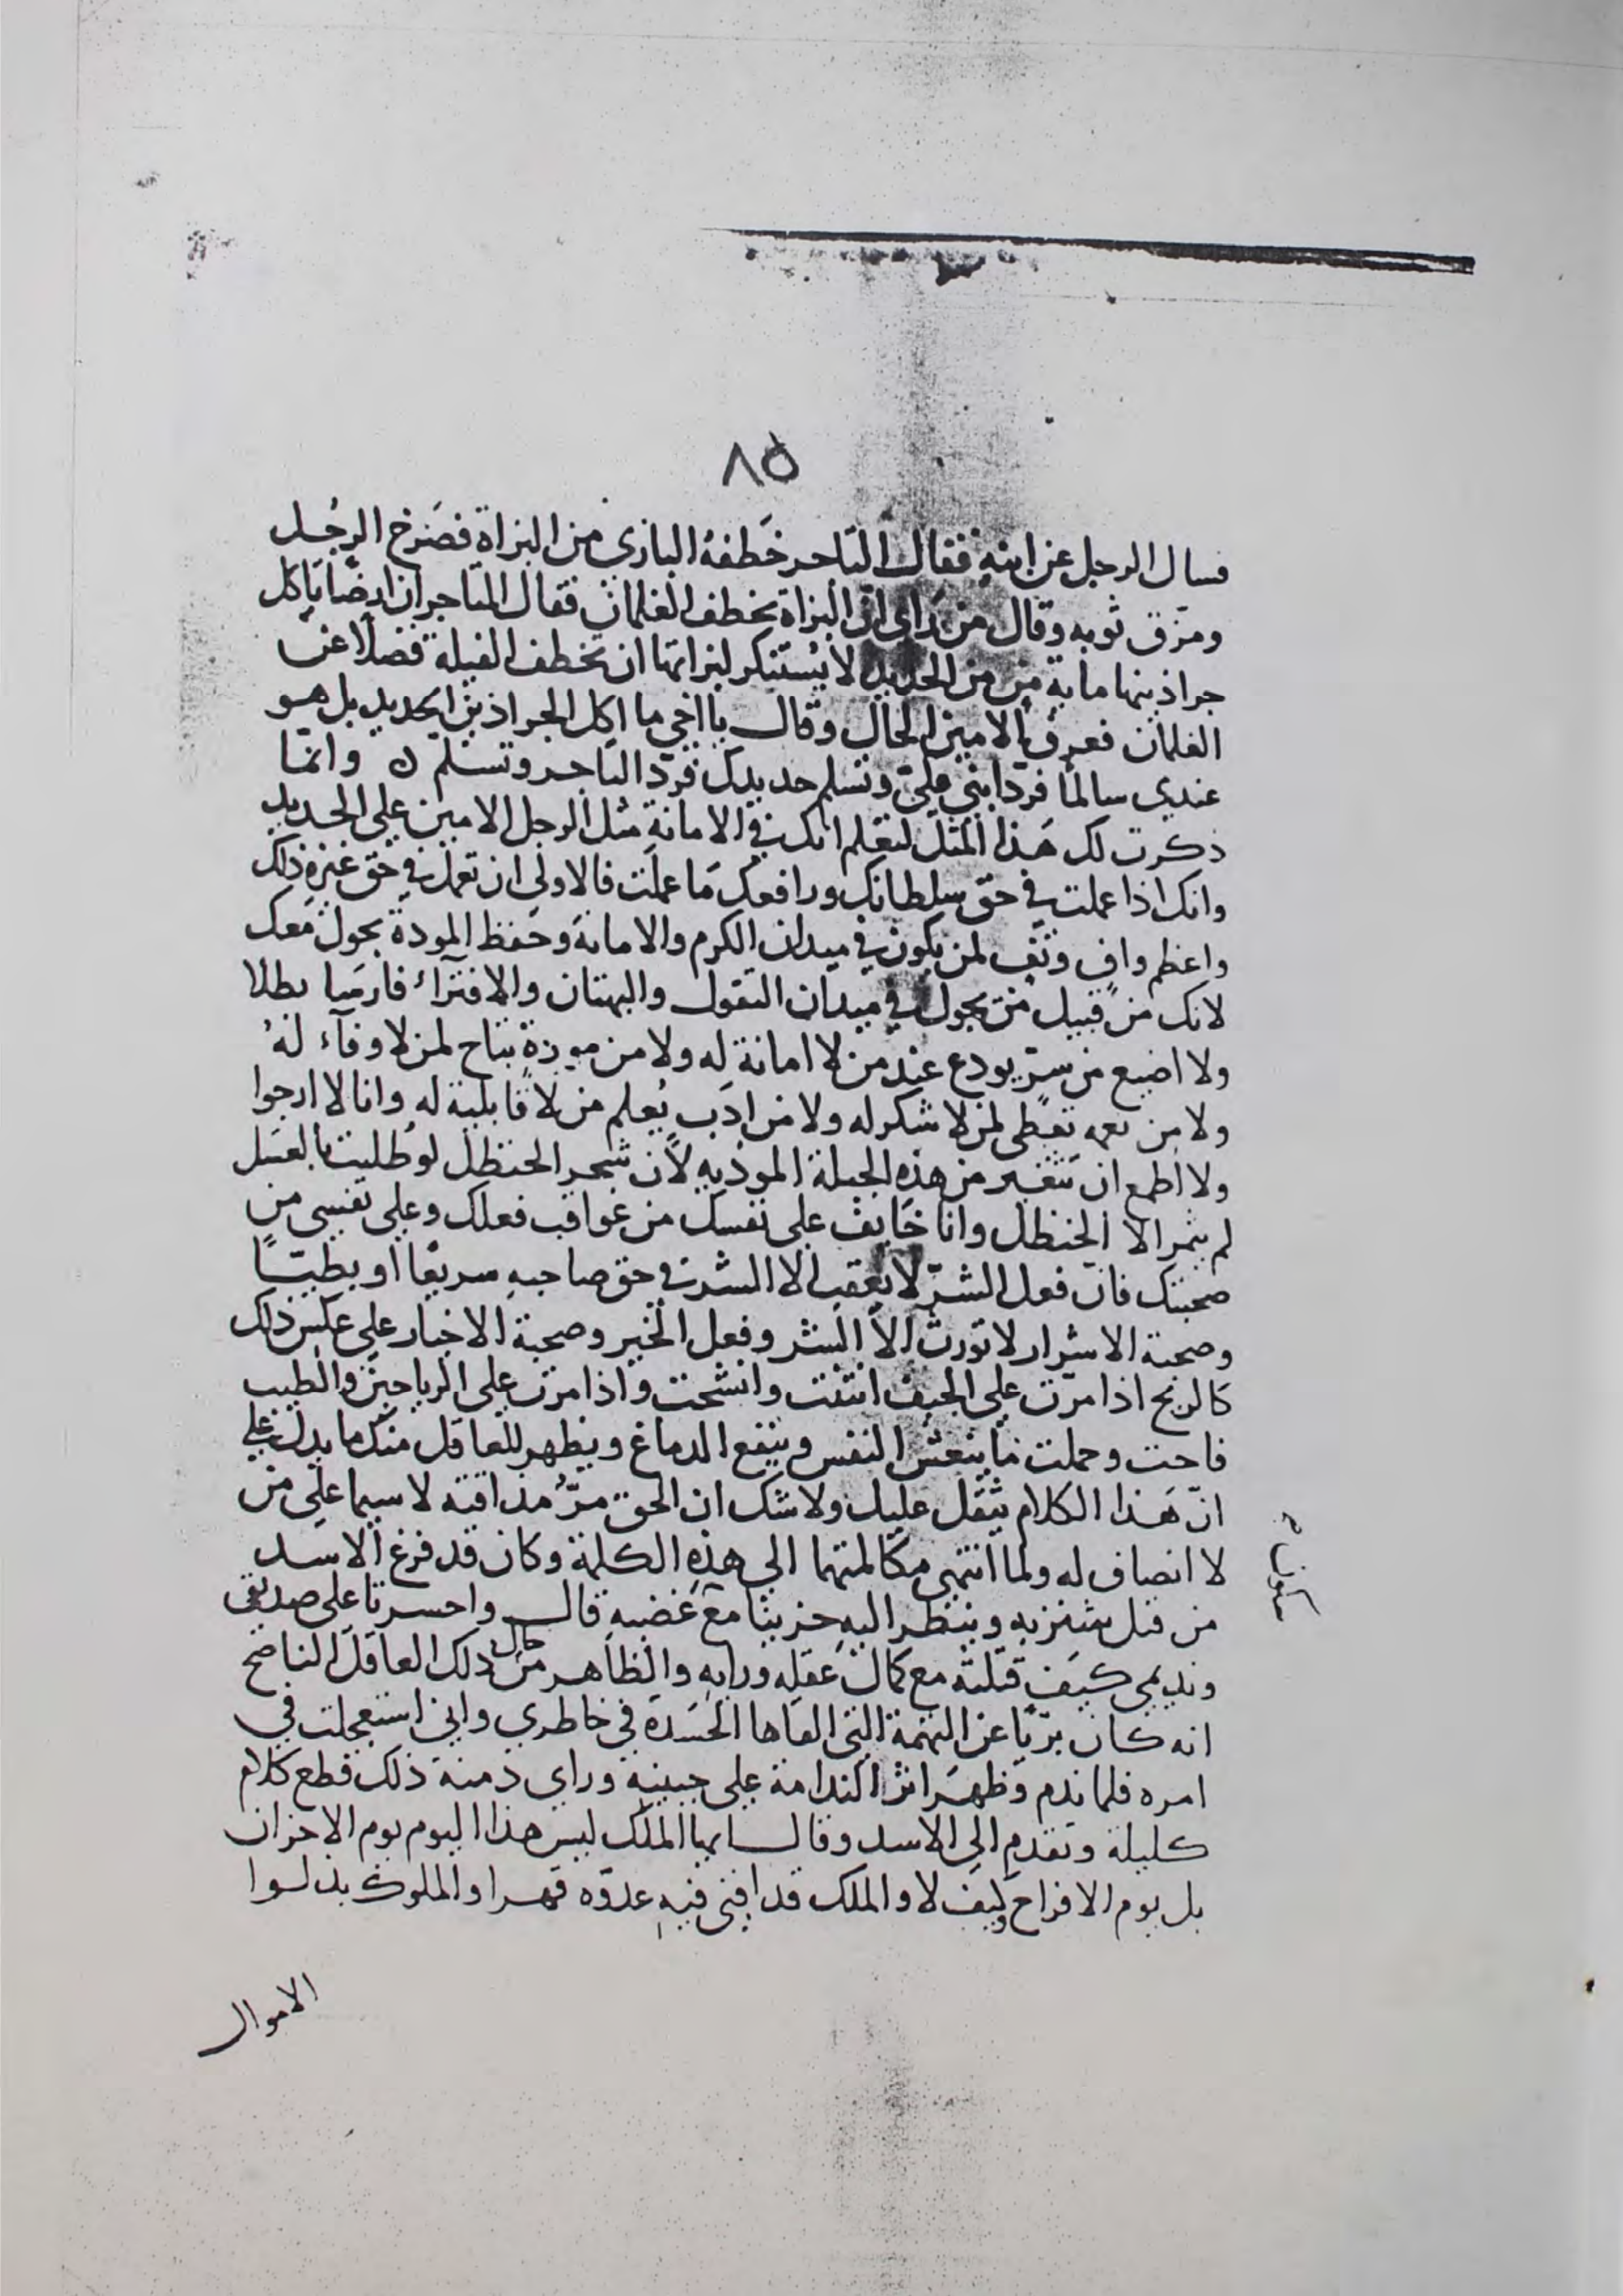 ٨٥
فسال الرجل عن ابنه فقال التاجر خَطفهُ البازي من البزاة فصَرخ الرجُل
ومزّق ثوبه وقال من رَاى انّ البزاة تخطف الغلمان فقال التاجر ان ارضًا تاكل
جراذينها ماية مَن من الحديد لا يُستنكر لبزاتها ان تخطف الفيلة فضلًا عن
الغلمان فعرف الامين الحال وقال يا اخي ما اكل الجراذين الحديد بل هو
عندي سالمًا فردّ ابني عليّ وتسلم حديدك فردّ التاجر وتسلم ن وانما
ذكرت لك هَذا المثل لتعلم انك في الامانة مثل الرجل الامين على الحديد
وانك اذا عملت في حق سلطانك ورافعك مَا عملت فالاولى ان تعمل في حق غيره ذلك
واعظم وافٍ وثق لمن يكون في ميدان الكرم والامانة وحَفظ المودة يجول معك
لانك من قبيل من يجول في ميدان التقول والبهتان والافترآء فارسًا بطلا
ولا اضيع من سرّ يودع عند من لا امانة له ولا من مودة تباح لمن لا وفآء لهُ
ولا من نعمه تعطى لمن لا شكر له ولا من ادب يُعلم من لا قابلية له وانا لا ارجوا
ولا اطمع ان تتغير من هذه الجبلة الموذيه لانّ شجر الحنظل لو طليت بالعسل
لم يثمر الا الحنظل وانا خايف على نفسك من عواقب فعلك وعلى نفسي من
صحبتك فان فعل الشرّ لا يعقب الا الشر في حق صاحبه سريعًا او بطيئًا
وصحبة الاشرار لا تورث الا الشر وفعل الخير وصحبة الاخيار على عكس ذلك
كالريح اذا مرّت على الجيف انتنت وانشحت واذا مرت على الرياحين والطيب
فاحت وحملت ما ينعش النفس وينفع الدماغ ويظهر للعاقل منك ما يدل على
انّ هَذا الكلام يثقل عليك ولا شك ان الحق مرُّ مذاقته لا سيما على من
لا انصاف له ولما انتهى مكالمتهما الى هذه الكلمة وكان قد فرغ الاسد
من قتل شنزبه وينظر اليه حزينا مع غضبه قال واحسرتا على صديقي
ونديمي كيف قتلته مع كمال عَقله ورايه والظاهر من حال ذلك العاقل الناصح
انه كان بريًا عن التهمة التي القاها الحسَدة في خاطري واني استعجلت في
امره فلما ندم وظهرَ اثر الندامة على جبينه وراى دمنة ذلك قطع كلام
كليلة وتقدم الى الاسد وقال ايها الملك ليس هذا اليوم يوم الاحزان
بل يوم الافراح وكيف لا والملك قد افنى فيه عدوّه قهرا والملوك بذلوا
الاموال